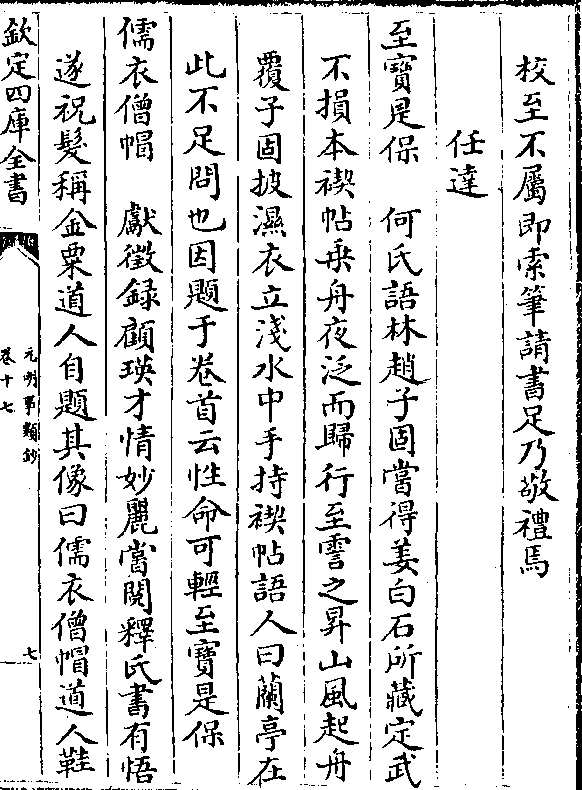 校至不屬即索筆請書足乃敬禮焉
任達
至寶是保　何氏語林趙子固嘗得姜白石所藏定武
不損本禊帖乗舟夜泛而歸行至霅之昇山風起舟
覆子固披濕衣立淺水中手持禊帖語人曰蘭亭在
此不足問也因題于卷首云性命可輕至寶是保
儒衣僧帽　獻徵録顧瑛才情妙麗嘗閱釋氏書有悟
遂祝髮稱金粟道人自題其像曰儒衣僧帽道人鞋
欽定四庫全書
元明事類鈔
卷十七
七